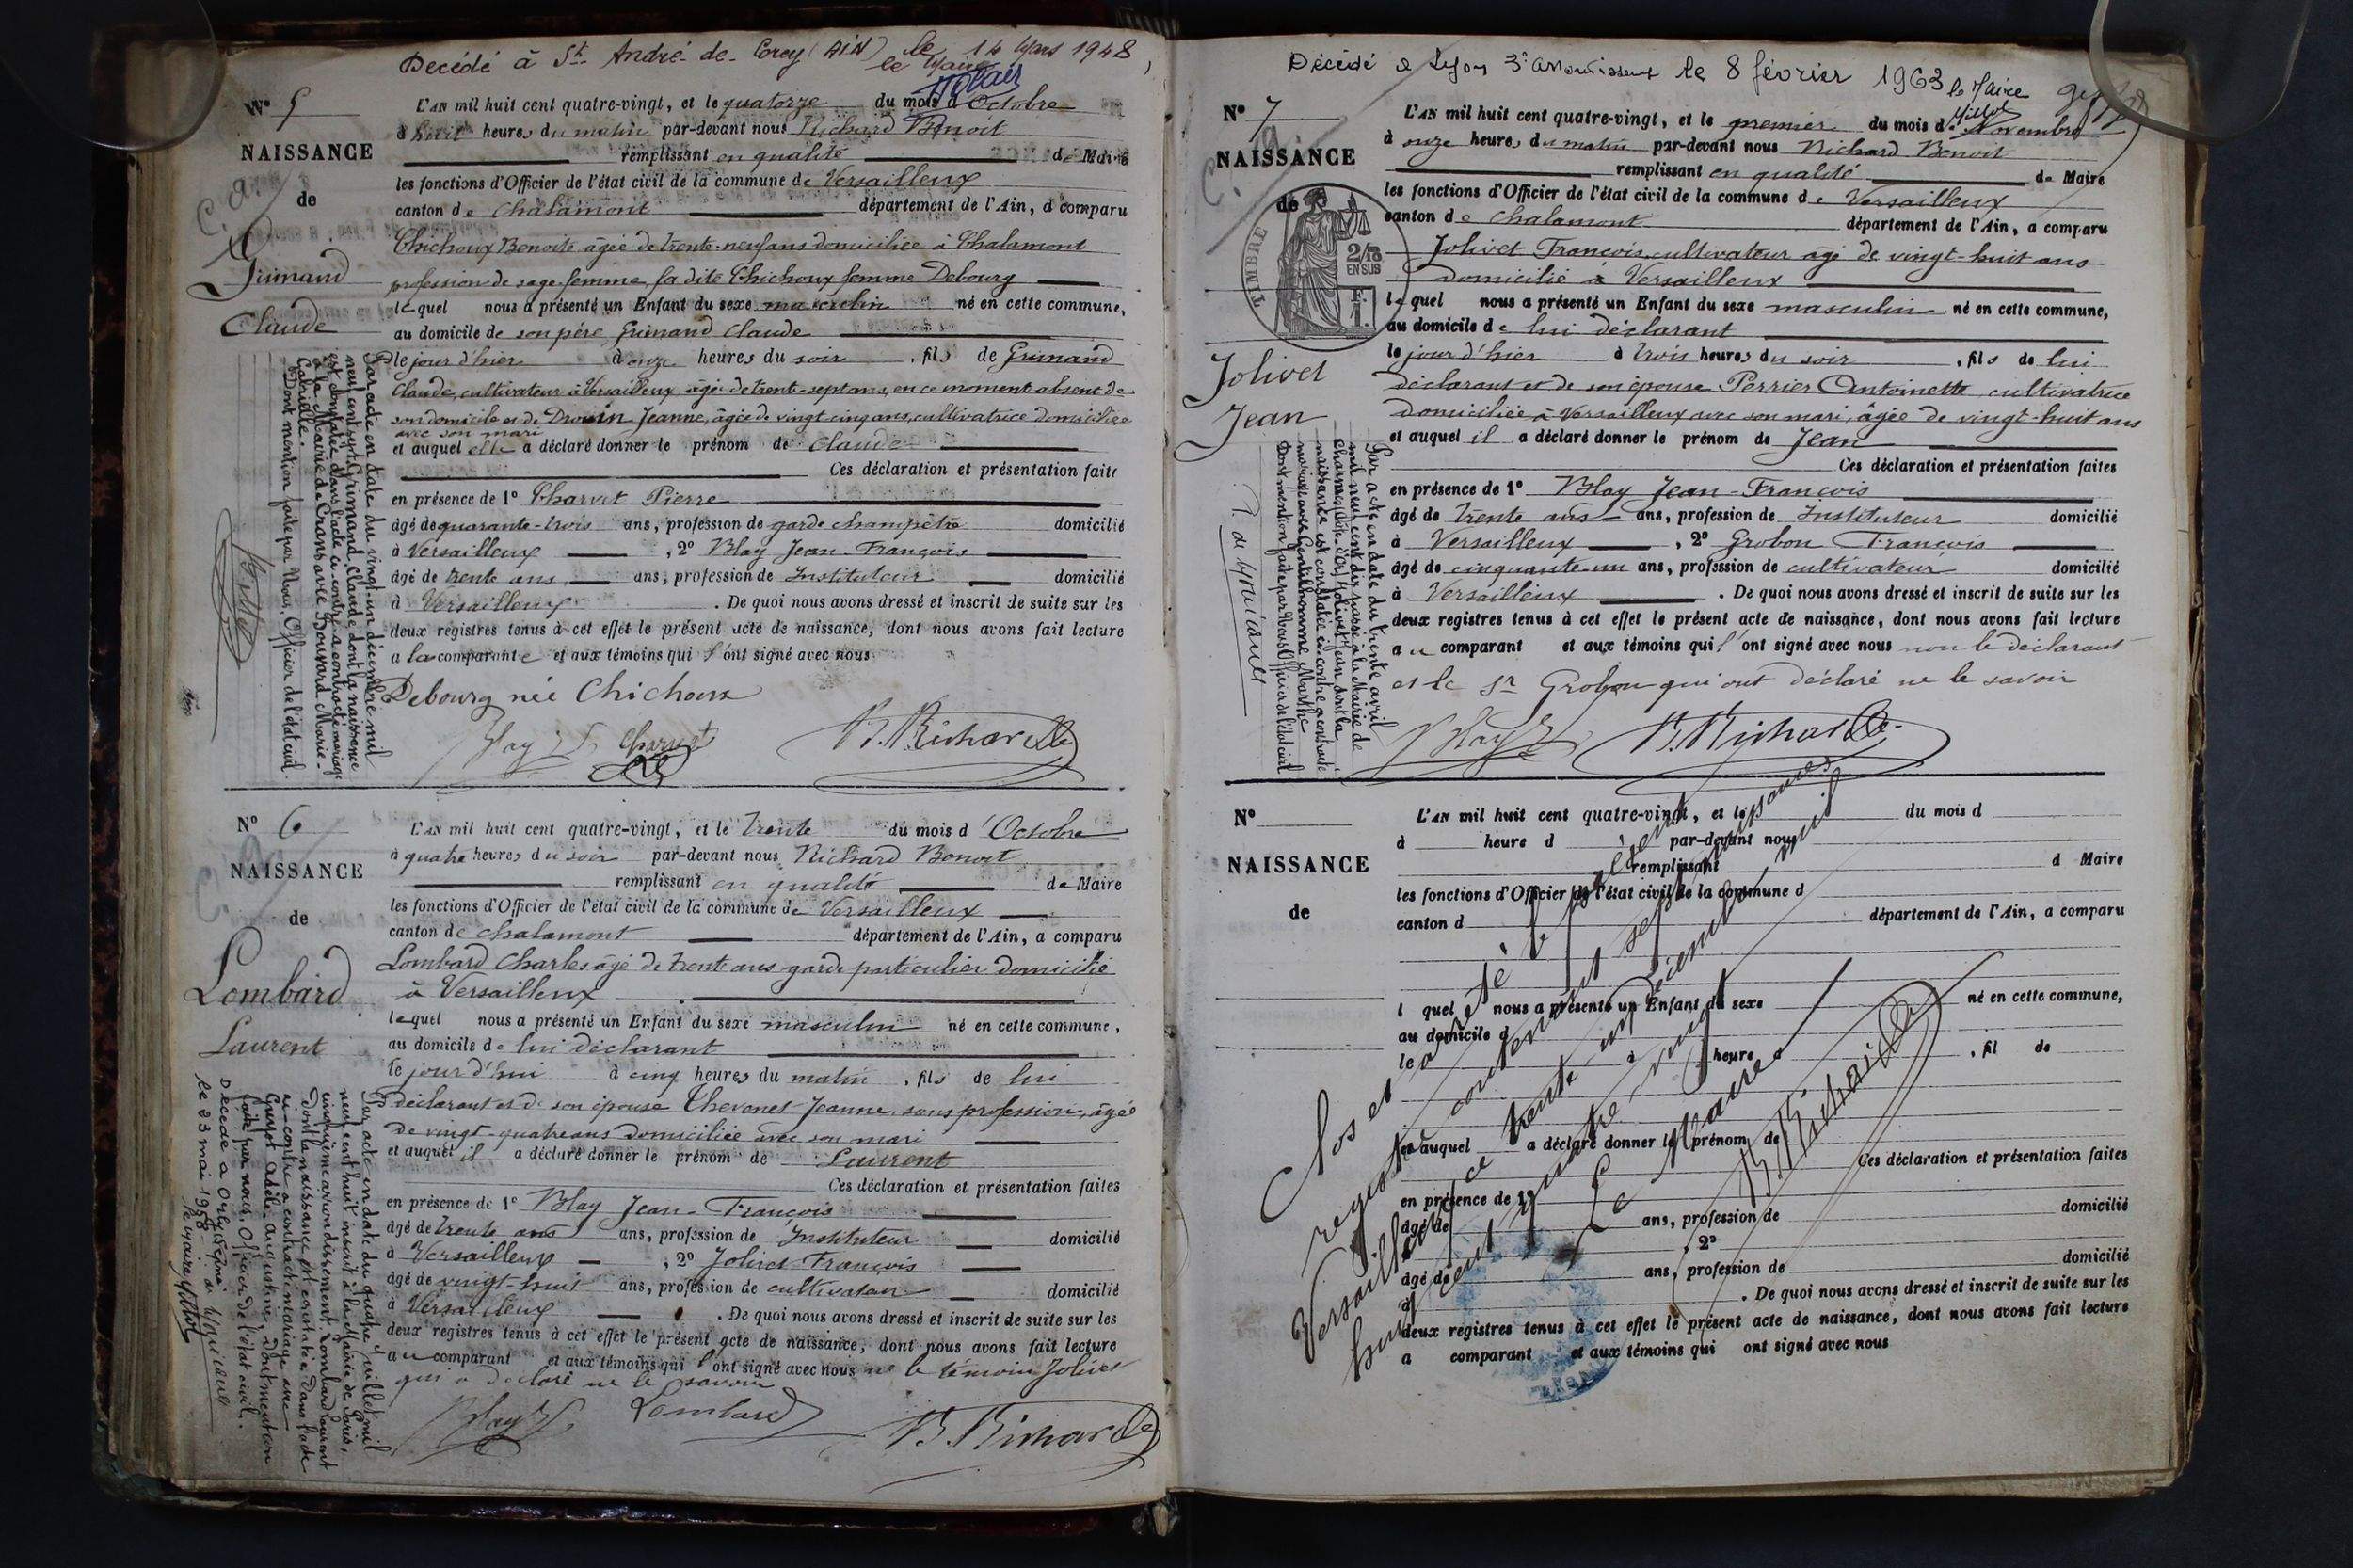 Décédé à St. André-de-Corcy (AIN) le 14 Mars 1948
le Maire
N° 5
NAISSANCE
de
Grimand
Claude
L'AN mil huit cent quatre-vingt, et le quatorze du mois d'Octobre
à huit heures du matin par-devant nous Richard Benoit
remplissant en qualité de Maire
les fonctions d'Officier de l'état civil de la commune de Versailleux
canton de Chalamont département de l'Ain, a comparu
Chichoux Benoite âgée de trente-neuf ans domiciliée à Chalamont
profession de sage femme, la dite Chichoux femme Debourg
lequel nous a présenté un Enfant du sexe masculin né en cette commune,
au domicile de son père Grimand Claude
le jour d'hier à onze heures du soir, fils de Grimand
Claude, cultivateur à Versailleux âgé de trent-sept ans, en ce moment absent de
son domicile et de Drouin Jeanne, âgée de vingt cinq ans, cultivatrice domiciliée
avec son mari
et auquel elle a déclaré donner le prénom de Claude
Ces déclaration et présentation faite
en présence de 1° Charvet Pierre
âgé de quarante-trois ans, profession de garde champêtre domicilié
à Versailleux, 2° Blay Jean-François
âgé de trente ans ans, profession de Instituteur domicilié
à Versailleux. De quoi nous avons dressé et inscrit de suite sur les
deux registres tenus à cet effet le présent acte de naissance, dont nous avons fait lecture
a la comparante et aux témoins qui l'ont signé avec nous
Debourg née Chichoux
Blay Charvet B. Richard
Par acte en date du vingt-un décembre mil
neuf cent sept Grimand Claude dont la naissance
est constatée dans l'acte ci-contre a contracté mariage
à la Mairie de Crans avec Bouvard Marie-
Dont mention faite par Nous, Officier de l'état civil.
N° 6
NAISSANCE
de
Lombard
Laurent
L'AN mil huit cent quatre-vingt, et le trente du mois d'Octobre
à quatre heures du soir par-devant nous Richard Benoit
remplissant en qualité de Maire
les fonctions d'Officier de l'état civil de la commune de Versailleux
canton de chalamont département de l'Ain, a comparu
Lombard Charles âgé de trente ans garde particulier domicilié
à Versailleux
lequel nous a présenté un Enfant du sexe masculin né en cette commune,
au domicile de lui déclarant
le jour d'hui à cinq heures du matin, fils de lui
déclarant et de son épouse Thevenet Jeanne, sans profession, âgée
de vingt-quatre ans domiciliée avec son mari
et auquel il a déclaré donner le prénom de Laurent
Ces déclaration et présentation faites
en présence de 1° Blay Jean-François
âgé de trente ans ans, profession de Instituteur domicilié
à Versailleux, 2° Jolivet François
âgé de vingt-huit ans, profession de cultivateur domicilié
à Versailleux. De quoi nous avons dressé et inscrit de suite sur les
deux registres tenus à cet effet le présent acte de naissance, dont nous avons fait lecture
au comparant et aux témoins qui l'ont signé avec nous le témoin Jolivet
qui a déclaré ne le savoir
Blay Lombard B. Richard
Par acte en date du quatre juillet mil
neuf cent huit inscrit à la Mairie de Paris,
cinquième arrondissement Lombard Laurent
dont la naissance est constatée dans l'acte
ci-contre a contracté mariage avec
Guyot Adèle Augustine, dont mention
faite par nous, Officier de l'état civil.
Décédé à Orly (Seine)
le 23 mai 1958
le Maire
Décédé à Lyon 3e arrondissement le 8 février 1963 le Maire
N° 7
NAISSANCE
de
TIMBRE
2/10
EN SUS
Jolivet
Jean
L'AN mil huit cent quatre-vingt, et le premier du mois de Novembre
à onze heures du matin par-devant nous Richard Benoit
remplissant en qualité de Maire
les fonctions d'Officier de l'état civil de la commune de Versailleux
canton de chalamont département de l'Ain, a comparu
Jolivet François cultivateur âgé de vingt-huit ans
domicilié à Versailleux
lequel nous a présenté un Enfant du sexe masculin né en cette commune,
au domicile de lui déclarant
le jour d'hier à trois heures du soir, fils de lui
déclarant et de son épouse Perrier Antoinette cultivatrice
domiciliée à Versailleux avec son mari, âgée de vingt-huit ans
et auquel il a déclaré donner le prénom de Jean
Ces déclaration et présentation faites
en présence de 1° Blay Jean-François
âgé de trente ans ans, profession de Instituteur domicilié
à Versailleux, 2° Grobon François
âgé de cinquante-un ans, profession de cultivateur domicilié
à Versailleux. De quoi nous avons dressé et inscrit de suite sur les
deux registres tenus à cet effet le présent acte de naissance, dont nous avons fait lecture
au comparant et aux témoins qui l'ont signé avec nous non le déclarant
et le Sr Grobon qui ont déclaré ne le savoir
Blay B. Richard
Par acte en date du trente avril
mil neuf cent dix passé à la Mairie de
Jolivet Jean dont la
naissance est constatée ci-contre a contracté
mariage avec Gentilhomme
Dont mention faite par Nous Officier de l'état civil
N°
NAISSANCE
de
L'AN mil huit cent quatre-vingt, et le du mois d
à heure d par-devant nous
remplissant d Maire
les fonctions d'Officier de l'état civil de la commune d
canton d département de l'Ain, a comparu
l quel nous a présenté un Enfant du sexe né en cette commune,
au domicile d
le à heure d, fil de
et auquel a déclaré donner le prénom de
Ces déclaration et présentation faites
en présence de 1°
âgé de ans, profession de domicilié
à, 2°
âgé de ans, profession de domicilié
à. De quoi nous avons dressé et inscrit de suite sur les
deux registres tenus à cet effet le présent acte de naissance, dont nous avons fait lecture
a comparant et aux témoins qui ont signé avec nous
Clos et arrêté le présent
registre contenant sept naissances
Versailleux ce trente un décembre mil
huit cent quatre-vingt
Le Maire
B. Richard